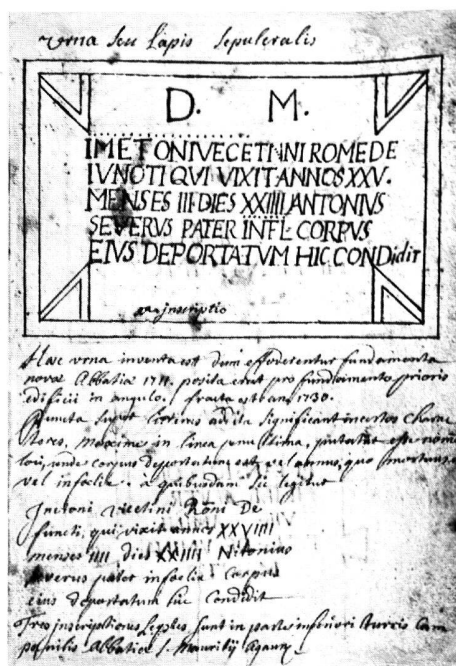 Vrna seu Lapis sepulcralis
D. M.
IMETONIVECETINNI ROME DE
IVNCTI QVI VIXIT ANNOS XXV.
MENSES III DIES XXIIII ANTONIVS
SEVERVS PATER INFL· CORPVS
EIVS DEPORTATVM HIC CONDidit
inscriptio
Haec vrna inventa est dum effoderentur fundamenta
novae Abbatiae 1711. posita erat pro fundamento prioris
aedificii in angulo, fracta est an. 1730.
Puncta supra literas addita significant incertos chara
cteres, maxime in linea penultima, putatur esse nomen
loci, unde corpus deportatum est, vel annus, quo mortuus,
vel infaelix. a quibusdam sic legitur
Vicetini Romi De
functi, qui vixit annos XXVIIII
menses IIII dies XXIIII Nitonius
severus pater infaelix corpus
eius deportatum hic Condidit
Tres inscriptiones sunt in parte inferiori turris Cam
panilis Abbatiae S. Mauritij Agaun.